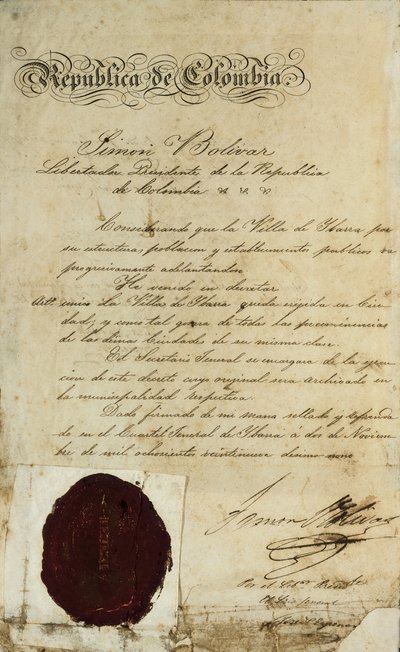 Republica de Colombia.
Simon Bolivar
Libertador Presidente de la Republica
de Colombia
Considerando que la Villa de Ibarra por
su estructura poblacion y establecimientos publicos va
progresivamente adelantandose
He venido en decretar
Art.º unico La Villa de Ibarra queda erejida en Ciu
dad; y como tal gozara de todas las preeminencias
de las demas Ciudades de su misma clase.
El Secretario General se encargara de la ejecu
cion de este decreto cuyo original sera archivado en
la municipalidad respectiva.
Dado firmado de mi mano sellado y refrenda
do en el Cuartel General de Ibarra á dos de Noviem
bre de mil ochocientos veintinueve decimo nono
Simon Bolivar
Por el
General